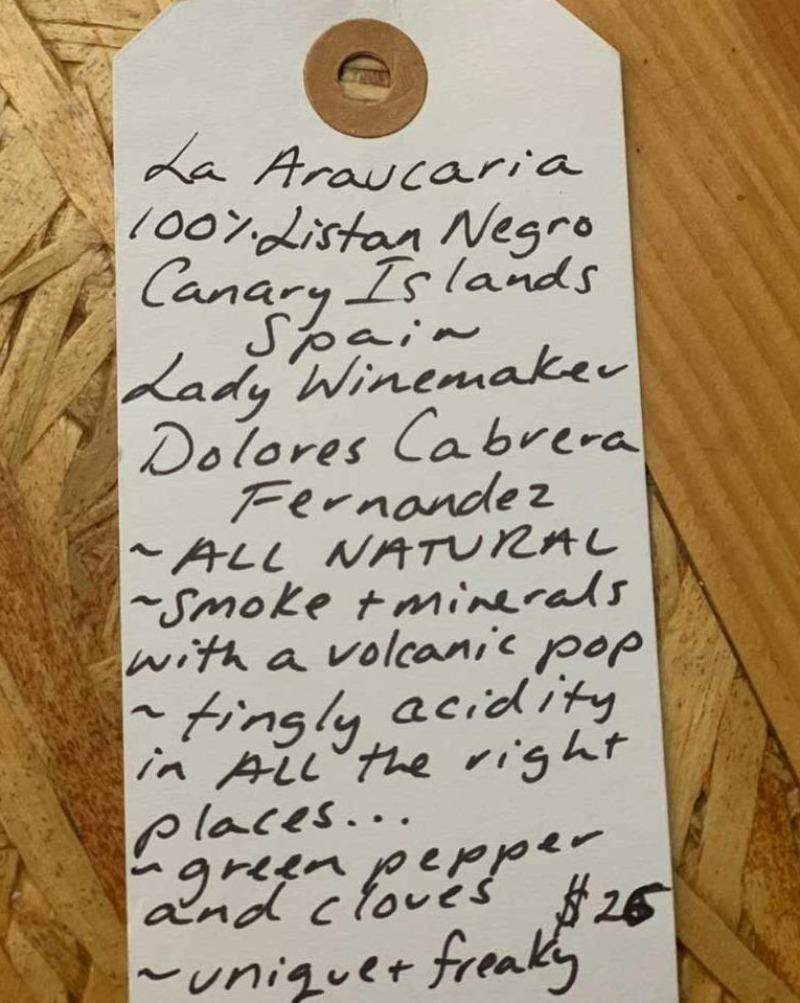 La Araucaria
100% Listan Negro
Canary Islands
Spain
Lady Winemaker
Dolores Cabrera
Fernandez
~ ALL NATURAL
~ Smoke + minerals
with a volcanic pop
~ tingly acidity
in ALL the right
places...
~ green pepper
and cloves
~ unique + freaky